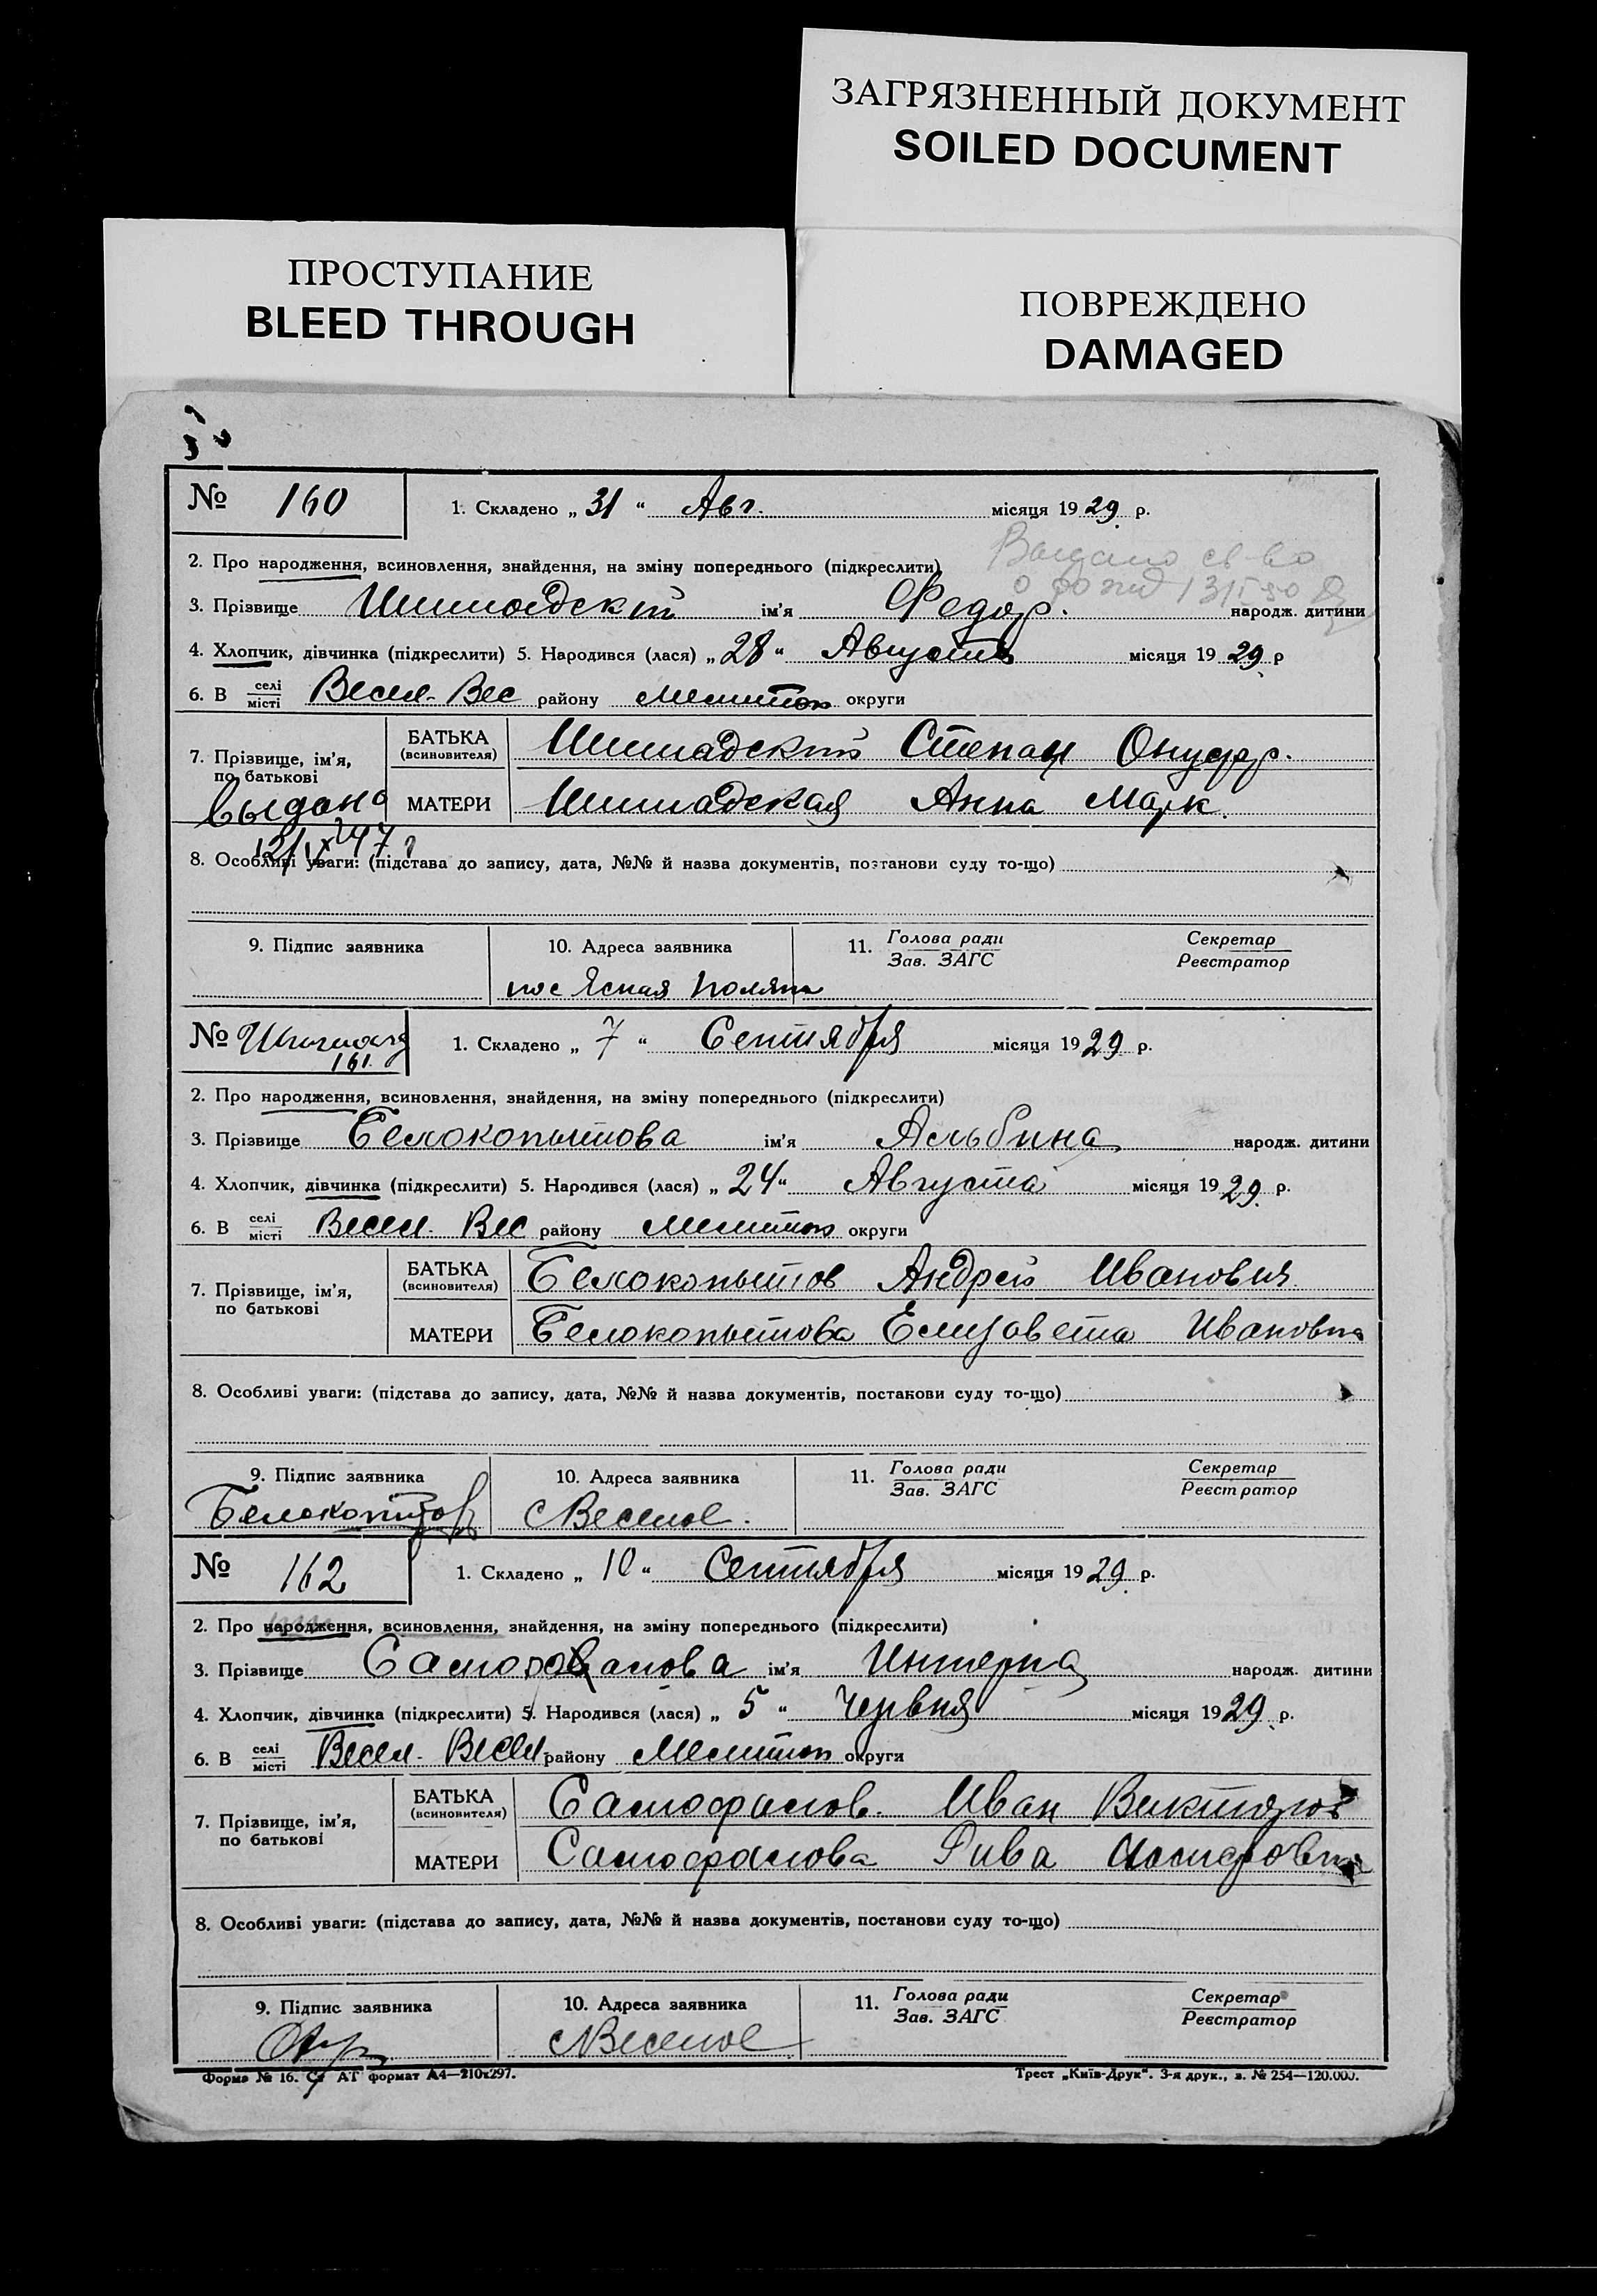 ЗАГРЯЗНЕННЫЙ ДОКУМЕНТ
SOILED DOCUMENT
ПРОСТУПАНИЕ
BLEED THROUGH
ПОВРЕЖДЕНО
DAMAGED
№ 160 1. Складено „ 31 “ Авг. місяця 1929 р.
Выдано св-во
2. Про народження, всиновлення, знайдення, на зміну попереднього (підкреслити)
3. Прізвище ім'я Федор. народж. дитини
4. Хлопчик, дівчинка (підкреслити) 5. Народився (лася) „ 28 “ Августа місяця 1929 р
6. В селі/місті Весел. Вес району Мелитоп округи
7. Прізвище, ім'я, по батькові
БАТЬКА (всиновителя) Степан Онуфр.
МАТЕРИ Анна Марк.
Выдано
8. Особливі уваги: (підстава до запису, дата, №№ й назва документів, постанови суду то-що)
9. Підпис заявника 10. Адреса заявника 11. Голова ради/Зав. ЗАГС Секретар/Реєстратор
пос Ясная Поляна
№ 161. 1. Складено „ 7 “ Сентября місяця 1929 р.
2. Про народження, всиновлення, знайдення, на зміну попереднього (підкреслити)
3. Прізвище Белокопытова ім'я Альбина народж. дитини
4. Хлопчик, дівчинка (підкреслити) 5. Народився (лася) „ 24 “ Августа місяця 1929. р.
6. В селі/місті Весел. Вес району Мелитоп округи
7. Прізвище, ім'я, по батькові
БАТЬКА (всиновителя) Белокопытов Андрей Иванович
МАТЕРИ Белокопытова Елизавета Ивановна
8. Особливі уваги: (підстава до запису, дата, №№ й назва документів, постанови суду то-що)
9. Підпис заявника 10. Адреса заявника 11. Голова ради/Зав. ЗАГС Секретар/Реєстратор
Белокопытов с Веселое.
№ 162 1. Складено „ 10 “ Сентября місяця 1929. р.
2. Про народження, всиновлення, знайдення, на зміну попереднього (підкреслити)
3. Прізвище ім'я Интерна народж. дитини
4. Хлопчик, дівчинка (підкреслити) 5. Народився (лася) „ 5 “ Червня місяця 1929. р.
6. В селі/місті Весел. Весел. району Мелитоп округи
7. Прізвище, ім'я, по батькові
БАТЬКА (всиновителя) Самофалов. Иван Викторов
МАТЕРИ Самофалова Рива Иосифовна
8. Особливі уваги: (підстава до запису, дата, №№ й назва документів, постанови суду то-що)
9. Підпис заявника 10. Адреса заявника 11. Голова ради/Зав. ЗАГС Секретар/Реєстратор
с Веселое
Форма № 16. Ст АТ формат А4—210x297. Трест „Київ-Друк“. 3-я друк., з. № 254—120.000.